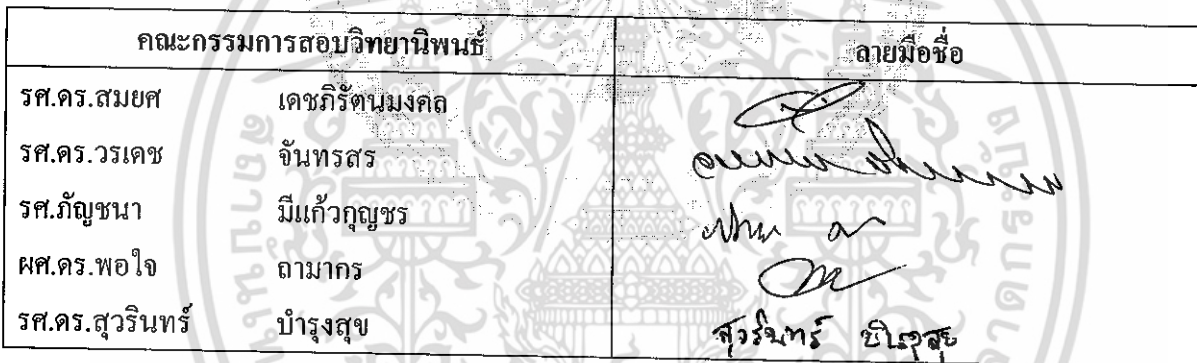 คณะกรรมการสอบวิทยานิพนธ์ ลายมือชื่อ
รศ.ดร.สมยศ เดชภิรัตนมงคล
รศ.ดร.วรเดช จันทรสร
รศ.ภัญชนา มีแก้วกุญชร
ผศ.ดร.พอใจ ถามากร
รศ.ดร.สุวรินทร์ บำรุงสุข สุวรินทร์ บำรุงสุข